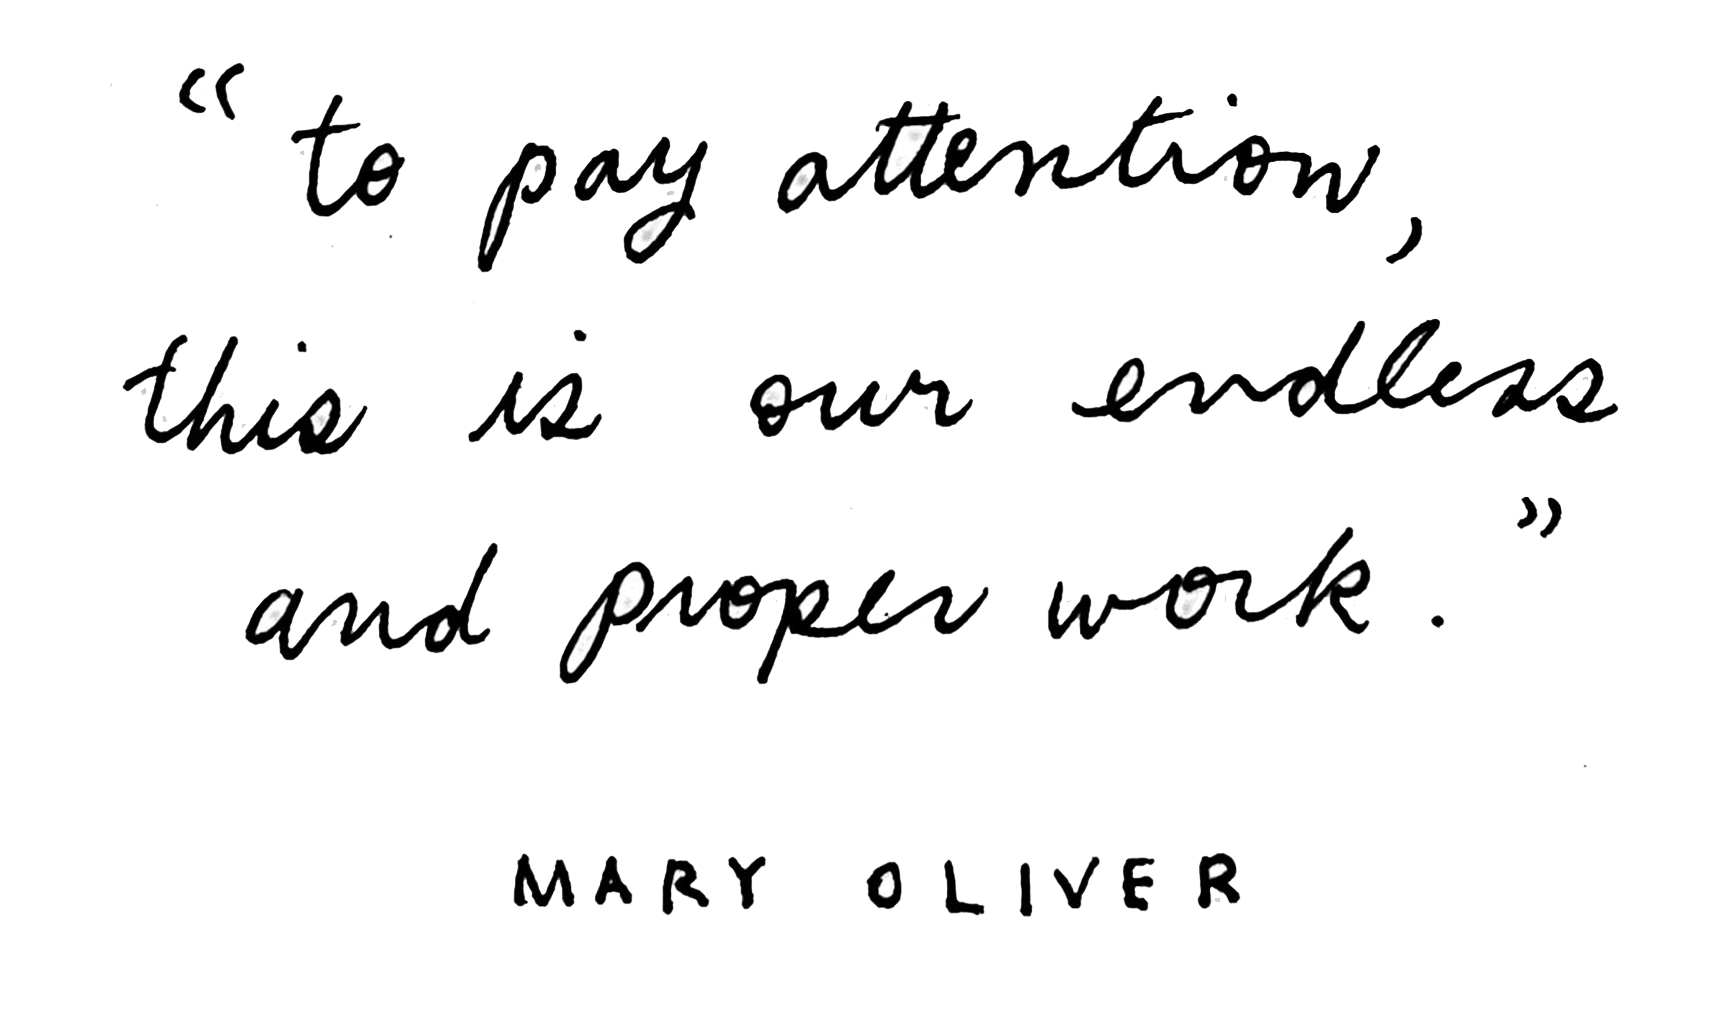 “to pay attention,
this is our endless
and proper work.”
MARY OLIVER